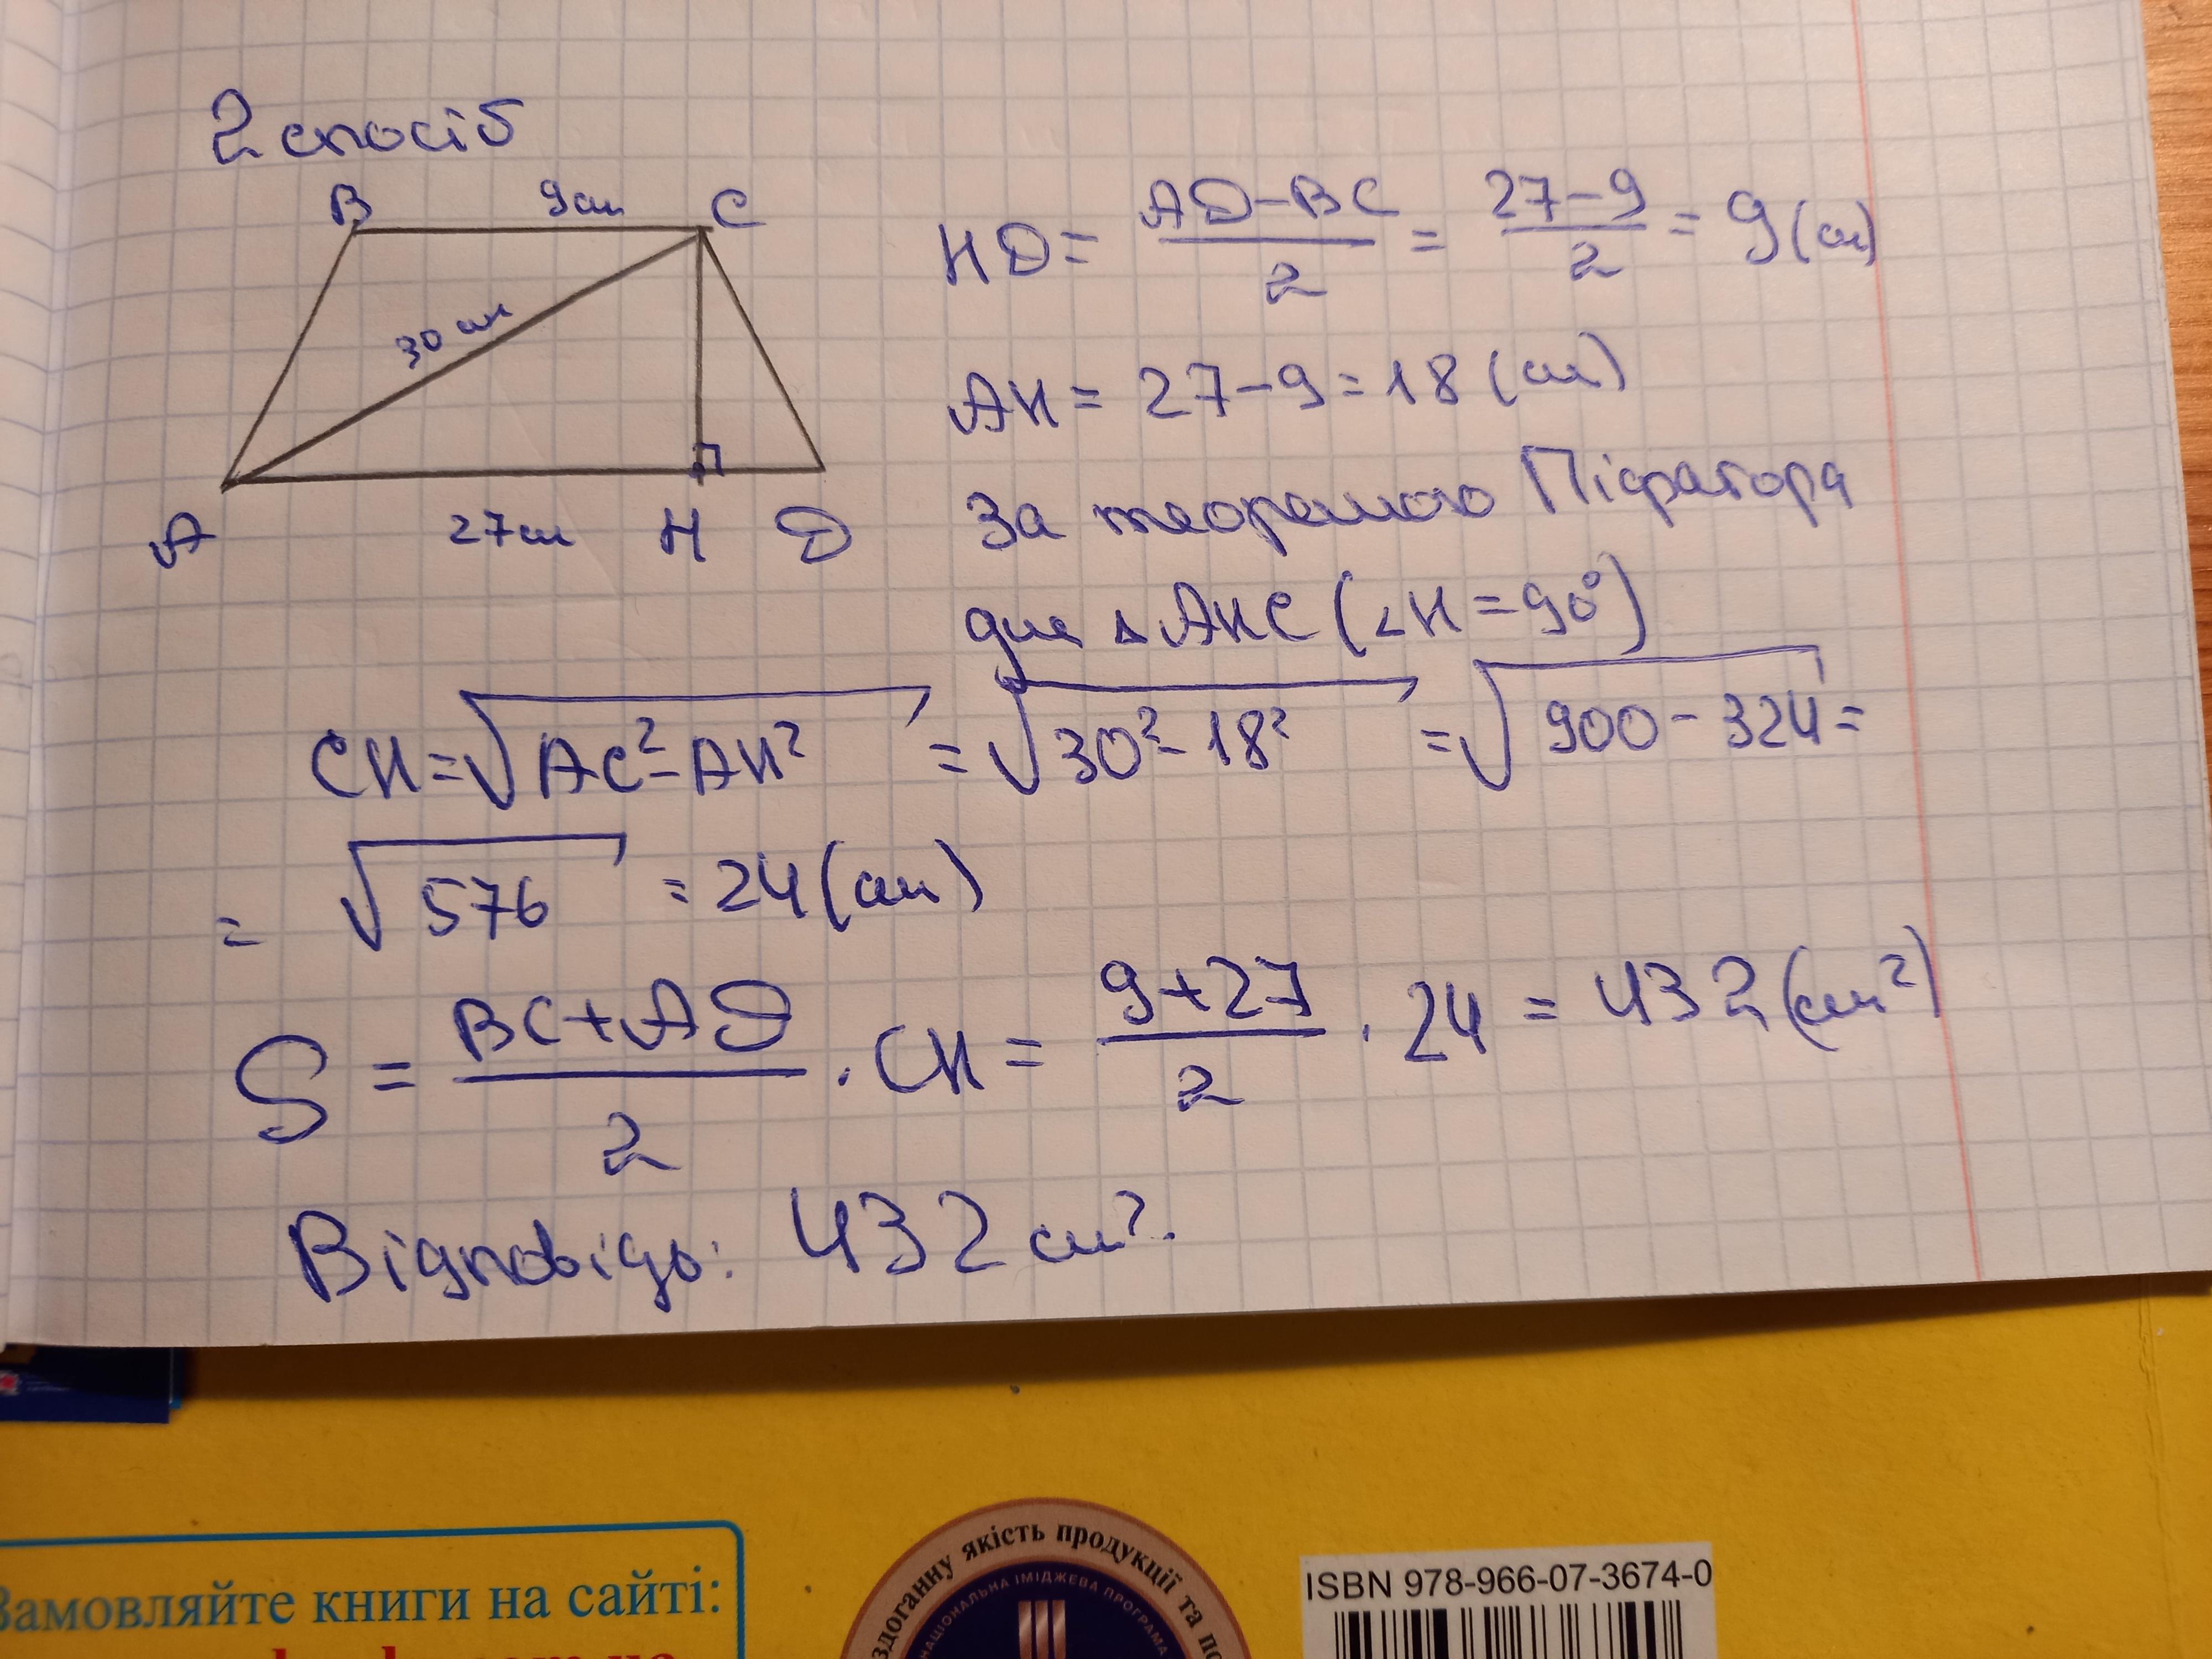 2 спосіб
B 9см C
30 см
A 27см H D
HD = AD-BC/2 = 27-9/2 = 9(см)
AH = 27-9=18 (см)
За теоремою Піфагора
для △AHC (∠H=90°)
CH=√AC²-AH² = √30²-18² = √900-324 =
= √576 = 24(см)
S = BC+AD/2 · CH = 9+27/2 · 24 = 432(см²)
Відповідь: 432 см².
Замовляйте книги на сайті:
здоганну якість продукції та по
НАЦІОНАЛЬНА ІМІДЖЕВА ПРОГРАМА
ISBN 978-966-07-3674-0